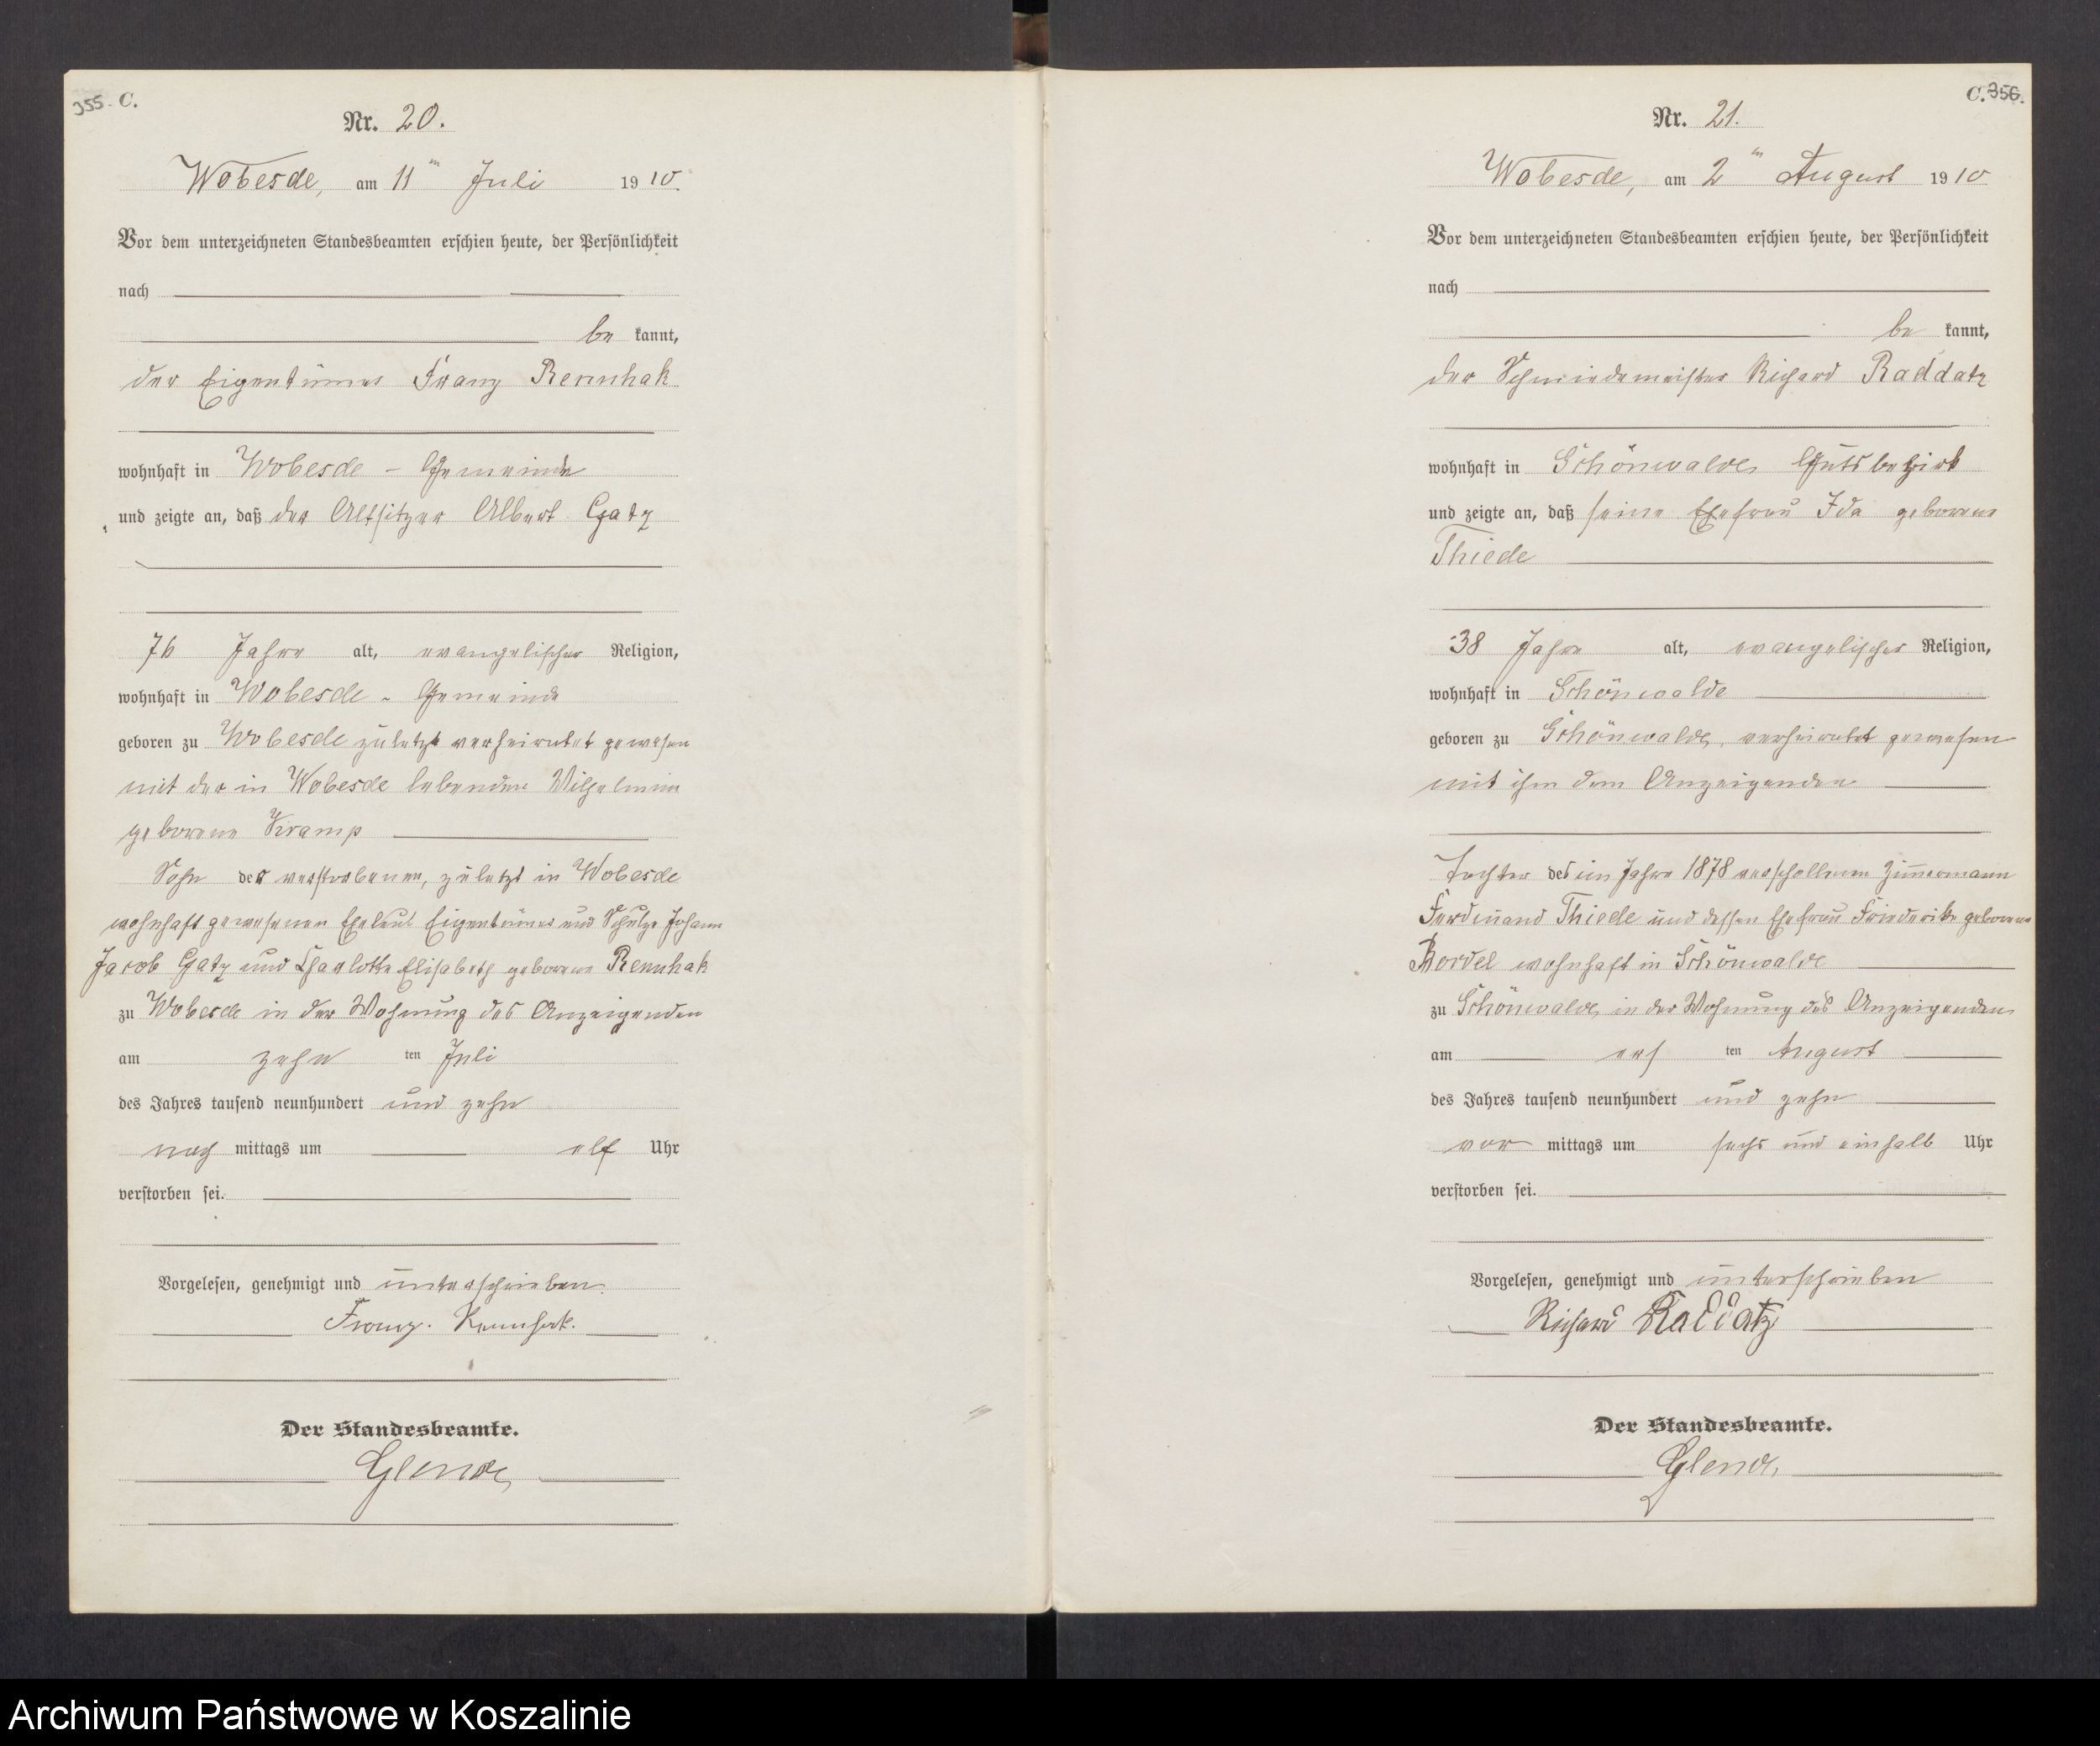 355. C.
Nr. 20.
Wobesde, am 11ten Juli 1910.
Vor dem unterzeichneten Standesbeamten erschien heute, der Persönlichkeit
nach
be kannt,
der Eigentümer Franz Rennhak
wohnhaft in Wobesde - Gemeinde
und zeigte an, daß der Altsitzer Albert Gatz
76 Jahre alt, evangelischer Religion,
wohnhaft in Wobesde - Gemeinde
geboren zu Wobesde zuletzt verheiratet gewesen
mit der in Wobesde lebenden Wilhelmine
geborene Kramp
Sohn der verstorbenen, zuletzt in Wobesde
wohnhaft gewesenen Eheleut Eigentümer und Schulze Johann
Jacob Gatz und Charlotte Elisabeth geborene Rennhak
zu Wobesde in der Wohnung des Anzeigenden
am zehn ten Juli
des Jahres tausend neunhundert und zehn
nach mittags um elf Uhr
verstorben sei.
Vorgelesen, genehmigt und unterschrieben.
Franz. Rennhak.
Der Standesbeamte.
C. 356.
Nr. 21.
Wobesde, am 2ten August 1910
Vor dem unterzeichneten Standesbeamten erschien heute, der Persönlichkeit
nach
be kannt,
der Schmiedemeister Richard Raddatz
wohnhaft in Schönwalde, Gutsbezirk
und zeigte an, daß seine Ehefrau Ida geborene
Thiede
38 Jahre alt, evangelischer Religion,
wohnhaft in Schönwalde
geboren zu Schönwalde, verheiratet gewesen
mit ihm dem Anzeigenden
Tochter des im Jahre 1878 verschollenen Zimmermann
Ferdinand Thiede und dessen Ehefrau Friederike geborene
wohnhaft in Schönwalde
zu Schönwalde, in der Wohnung des Anzeigenden
am ers ten August
des Jahres tausend neunhundert und zehn
vor mittags um sechs und einhalb Uhr
verstorben sei.
Vorgelesen, genehmigt und unterschrieben
Richard Raddatz
Der Standesbeamte.
Archiwum Państwowe w Koszalinie